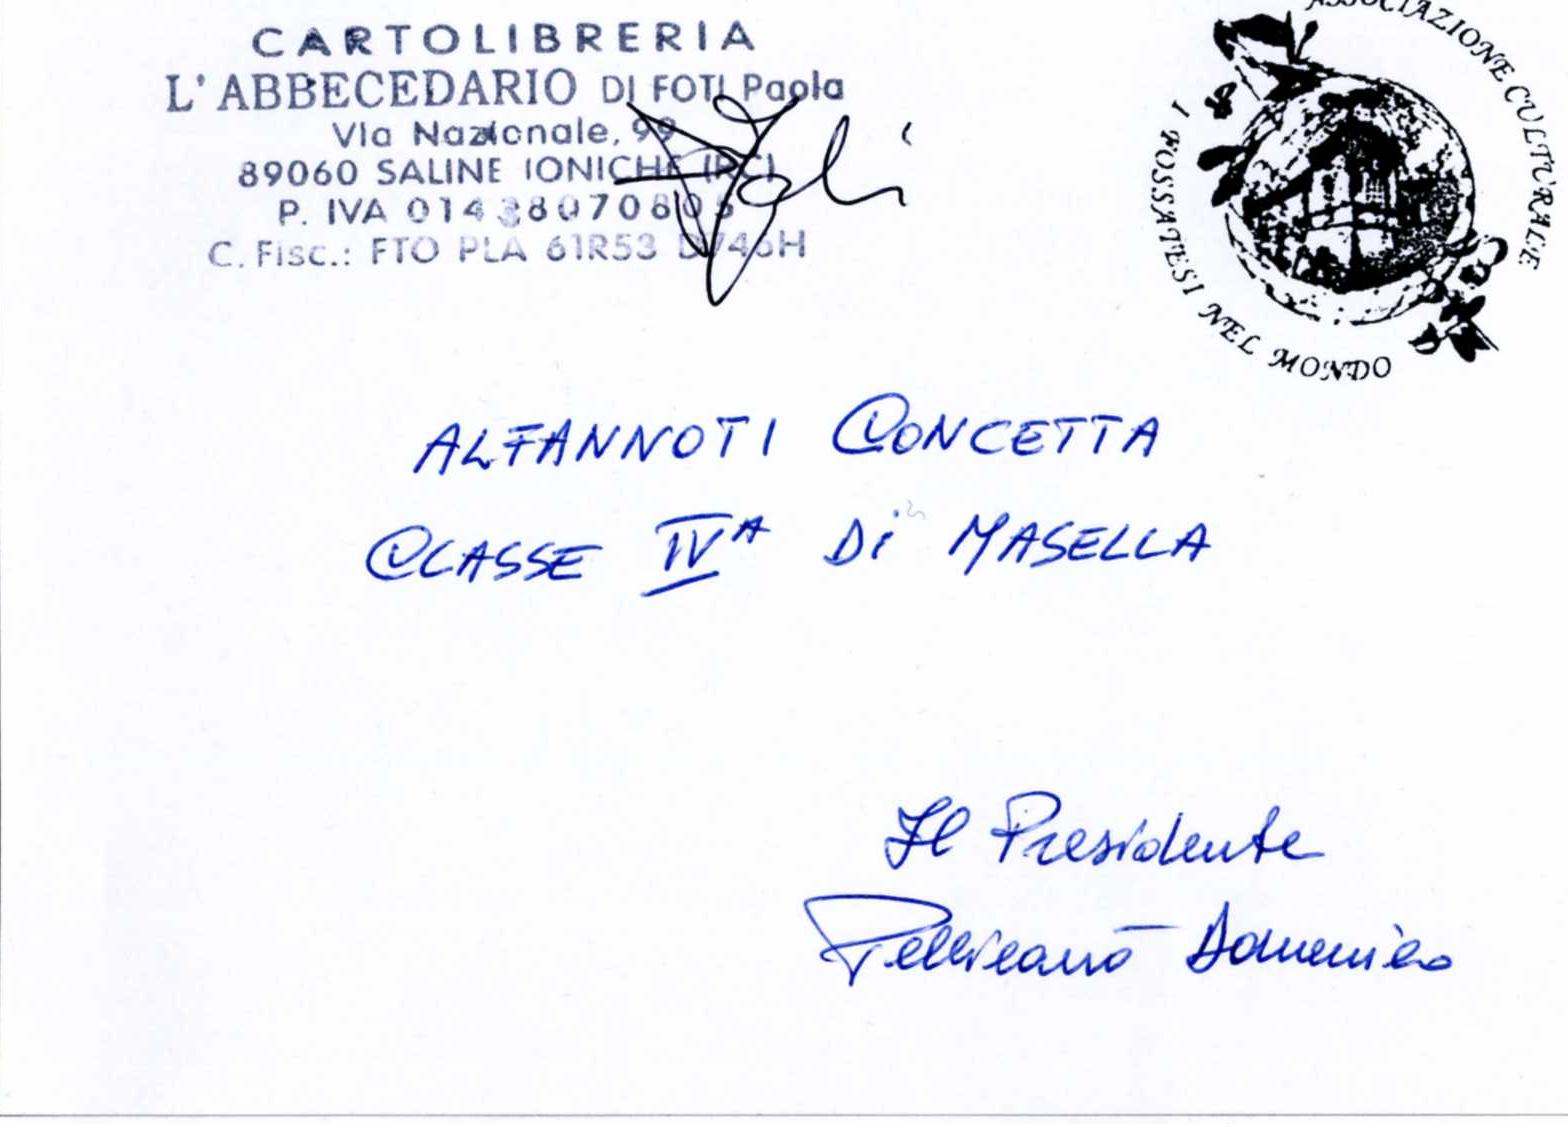 CARTOLIBRERIA
L'ABBECEDARIO DI FOTI Paola
Via Nazionale, 99
89060 SALINE IONICHE (RC)
P. IVA 01438070805
C. Fisc.: FTO PLA 61R53 D746H
Foti
ASSOCIAZIONE CULTURALE
I FOSSATESI NEL MONDO
ALFANNOTI CONCETTA
CLASSE IVA Di MASELLA
Il Presidente
Pellicanò Domenico